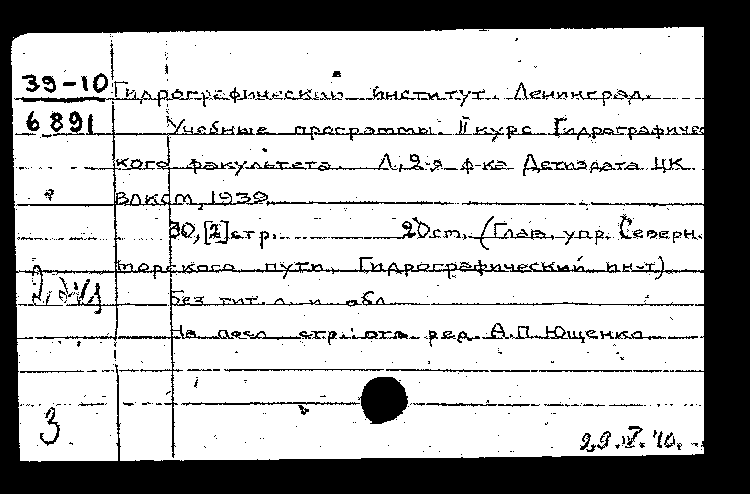 39-10 Гидрографический институт. Ленинград.
6891 Учебные программы. II курс Гидрографичес
кого факультета. Л., 2-я ф-ка Детиздата ЦК
ВЛКСМ, 1939.
30, [2] стр. 20 см. (Глав. упр. Северн.
морского пути. Гидрографический ин-т)
Без тит. л. и обл.
На посл. стр.: отв. ред. А.П. Ющенко.
3
29.IV.40.